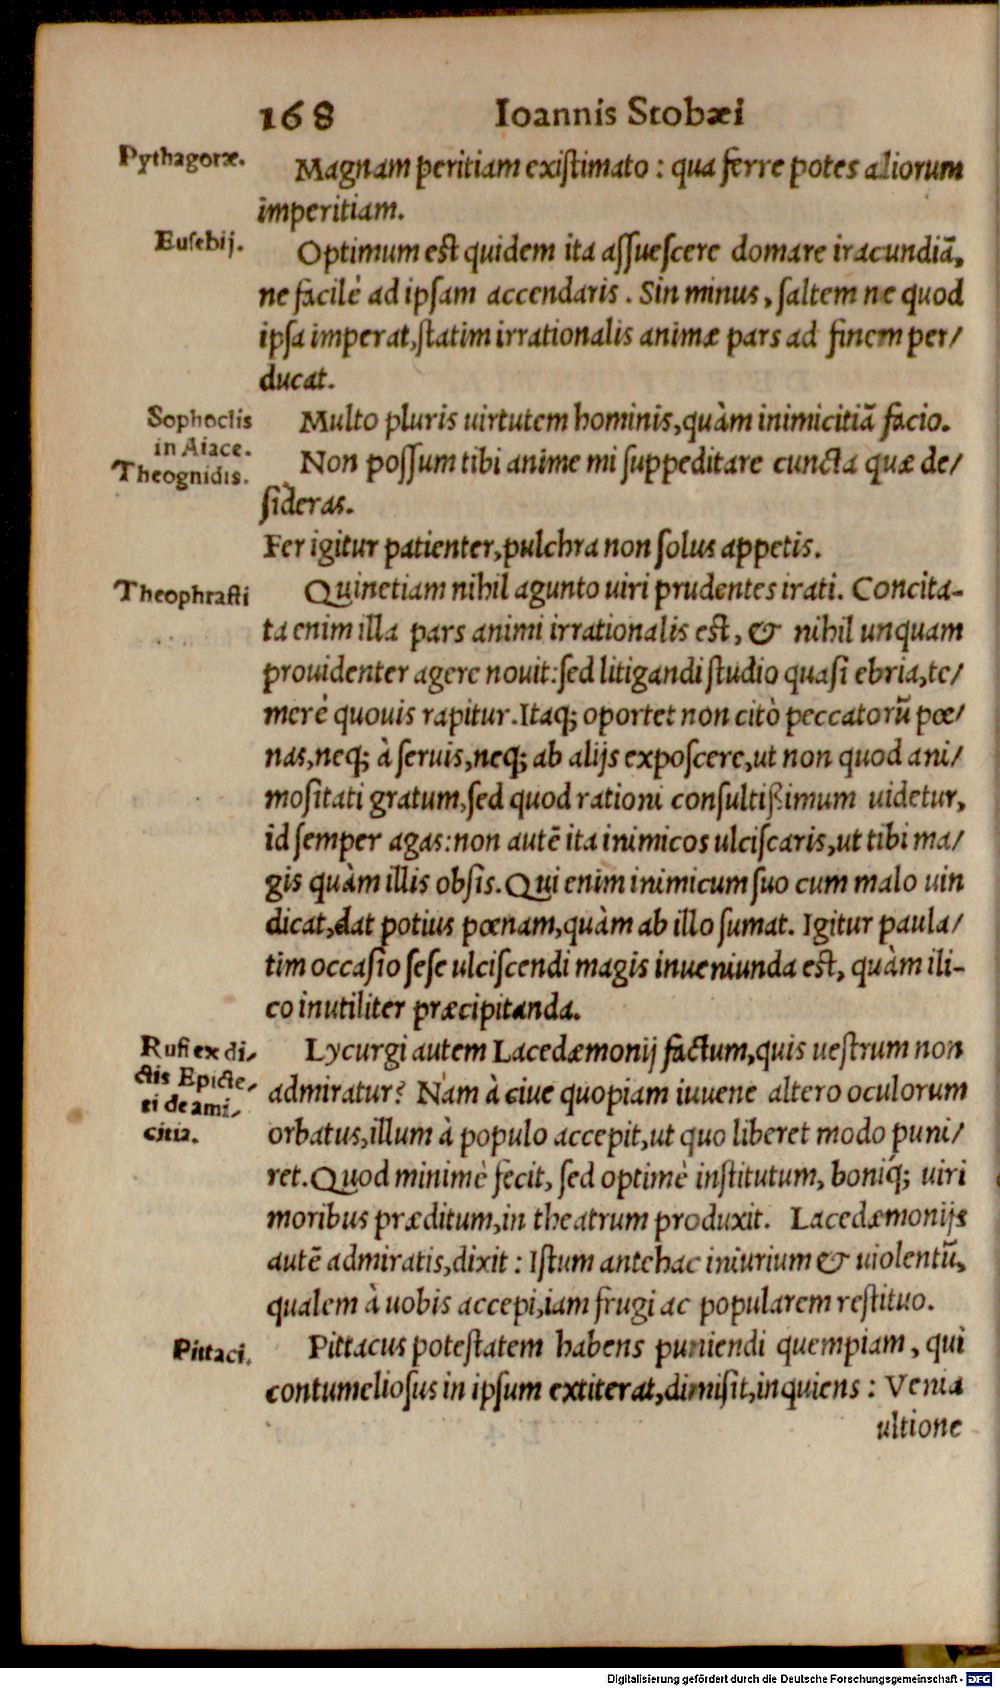 168 Ioannis Stobæi
Pythagoræ.
Magnam peritiam existimato : qua ferre potes aliorum
imperitiam.
Eusebij.
Optimum est quidem ita assuescere domare iracundiā,
ne facilè ad ipsam accendaris. Sin minus, saltem ne quod
ipsa imperat, statim irrationalis animæ pars ad finem per/
ducat.
Sophoclis
in Aiace.
Multo pluris uirtutem hominis, quàm inimicitiā facio.
Theognidis.
Non possum tibi anime mi suppeditare cuncta quæ de/
sideras.
Fer igitur patienter, pulchra non solus appetis.
Theophrasti
Quinetiam nihil agunto uiri prudentes irati. Concita-
ta enim illa pars animi irrationalis est, & nihil unquam
prouidenter agere nouit: sed litigandi studio quasi ebria, te/
merè quouis rapitur. Itaq; oportet non citò peccatorū pœ/
nas, neq; à seruis, neq; ab alijs exposcere, ut non quod ani/
mositati gratum, sed quod rationi consultißimum uidetur,
id semper agas: non autē ita inimicos ulciscaris, ut tibi ma/
gis quàm illis obsis. Qui enim inimicum suo cum malo uin
dicat, dat potius pœnam, quàm ab illo sumat. Igitur paula/
tim occasio sese ulciscendi magis inueniunda est, quàm ili-
co inutiliter præcipitanda.
Rufi ex di/
ctis Epicte/
ti de ami/
citia.
Lycurgi autem Lacedæmonij factum, quis uestrum non
admiratur? Nam à ciue quopiam iuuene altero oculorum
orbatus, illum à populo accepit, ut quo liberet modo puni/
ret. Quod minimè fecit, sed optimè institutum, boniq́; uiri
moribus præditum, in theatrum produxit. Lacedæmonijs
autē admiratis, dixit : Istum antehac iniurium & uiolentū,
qualem à uobis accepi, iam frugi ac popularem restituo.
Pittaci.
Pittacus potestatem habens puniendi quempiam, qui
contumeliosus in ipsum extiterat, dimisit, inquiens : Venia
ultione
Digitalisierung gefördert durch die Deutsche Forschungsgemeinschaft - DFG